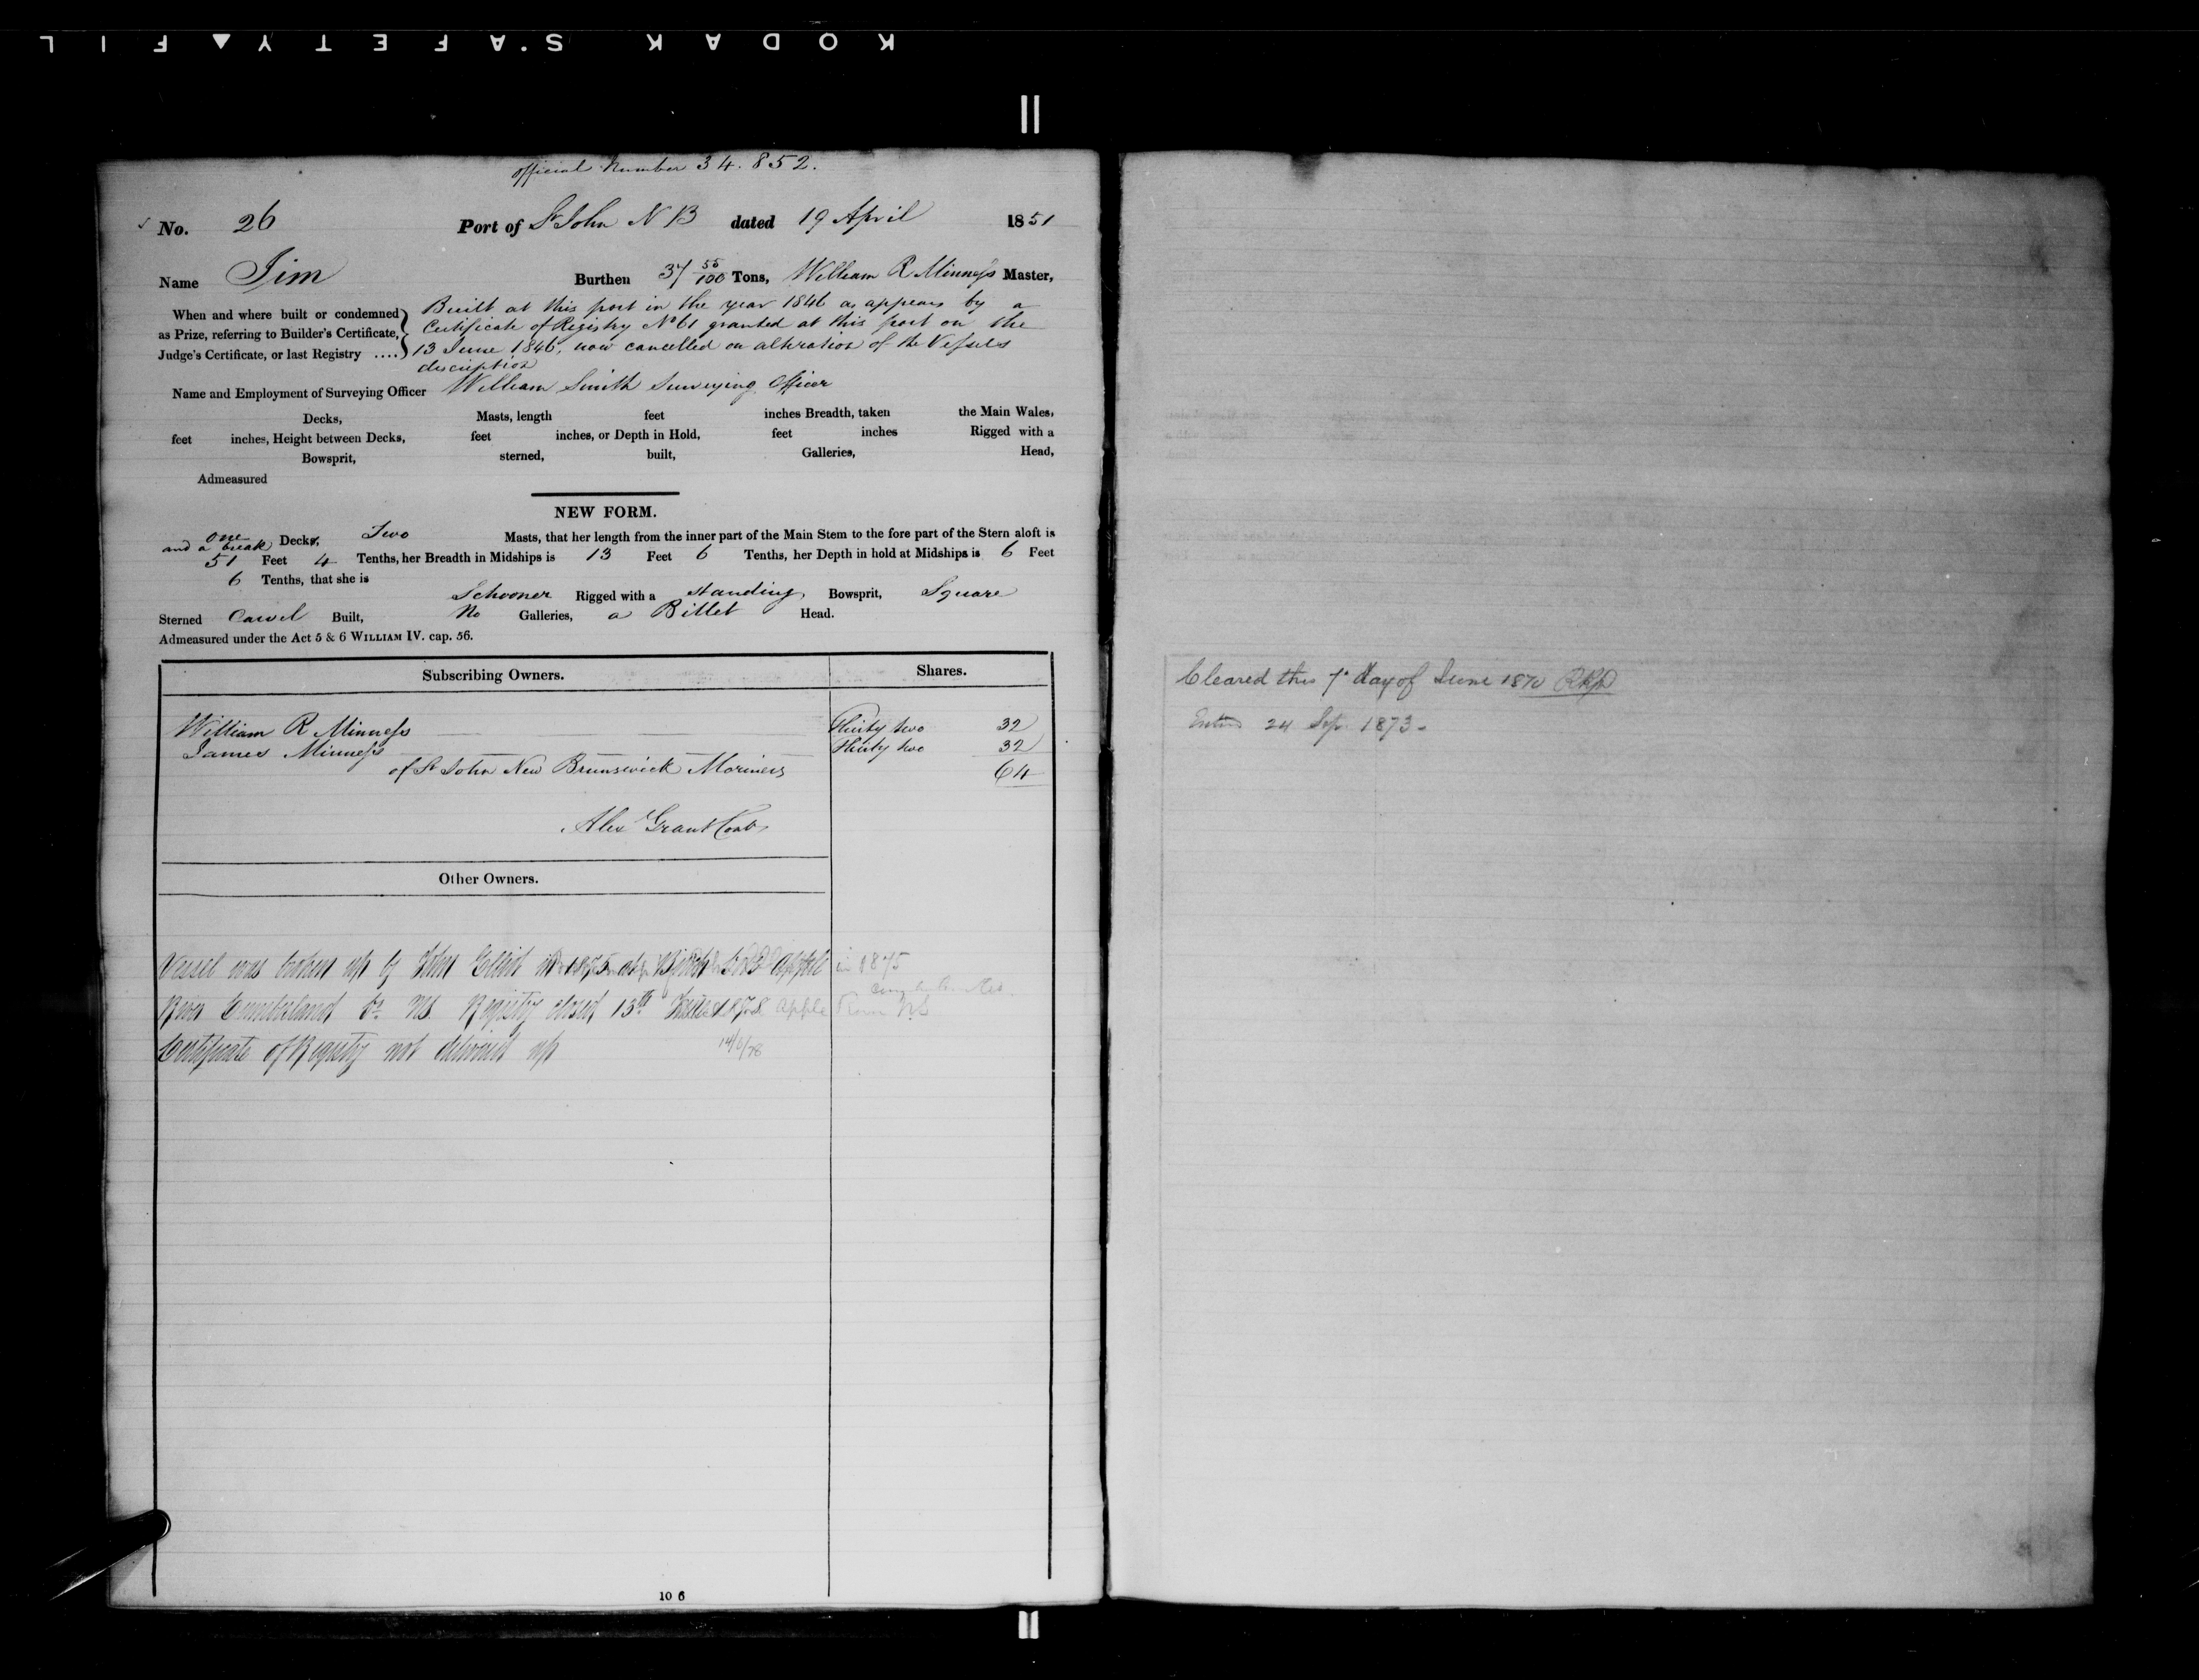 KODAK S'AFETY▲FIL
official Number 34.852.
No. 26 Port of St John N B dated 19 April 1851
Name Jim Burthen 37 55/100 Tons, William R Minness Master,
When and where built or condemned as Prize, referring to Builder's Certificate, Judge's Certificate, or last Registry ....
Built at this port in the year 1846 as appears by a
Certificate of Registry No 61 granted at this port on the
13 June 1846, now cancelled on alteration of the Vessels
description
Name and Employment of Surveying Officer William Smith Surveying Officer
Decks, Masts, length feet inches Breadth, taken the Main Wales,
feet inches, Height between Decks, feet inches, or Depth in Hold, feet inches Rigged with a
Bowsprit, sterned, built, Galleries, Head,
Admeasured
NEW FORM.
one and a break Decks, Two Masts, that her length from the inner part of the Main Stem to the fore part of the Stern aloft is
51 Feet 4 Tenths, her Breadth in Midships is 13 Feet 6 Tenths, her Depth in hold at Midships is 6 Feet
6 Tenths, that she is
Schooner Rigged with a standing Bowsprit, Square
Sterned Carvel Built, No Galleries, a Billet Head.
Admeasured under the Act 5 & 6 WILLIAM IV. cap. 56.
Subscribing Owners. Shares.
William R Minness Thirty two 32
James Minness Thirty two 32
of St John New Brunswick Mariners 64
Alex Grant Cont
Other Owners.
Vessel was broken up by John Elliot in 1875 at Apple in 1875
River Cumberland Co NS. Registry closed 13th June 1878 Apple River NS
Certificate of Registry not delivered up 14/6/78
10 6
Cleared this 7th day of June 1870
Entd 24 Sep. 1873